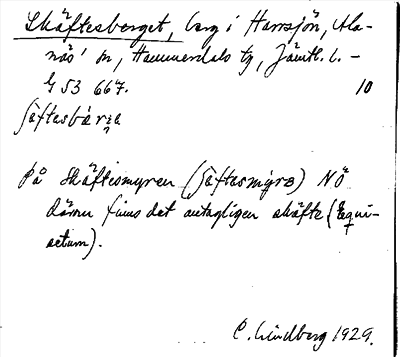 Skäftesberget, berg i Harrsjön, Ala-
näs' sn, Hammerdals tg, Jämtl. l. -
G 53 667. 10
ʃäftesbárɡe
På Skäftesmyren (ʃäftesmýra) NÖ
därom finns det antagligen skäfte (Equi-
setum).
C. Lindberg 1929.